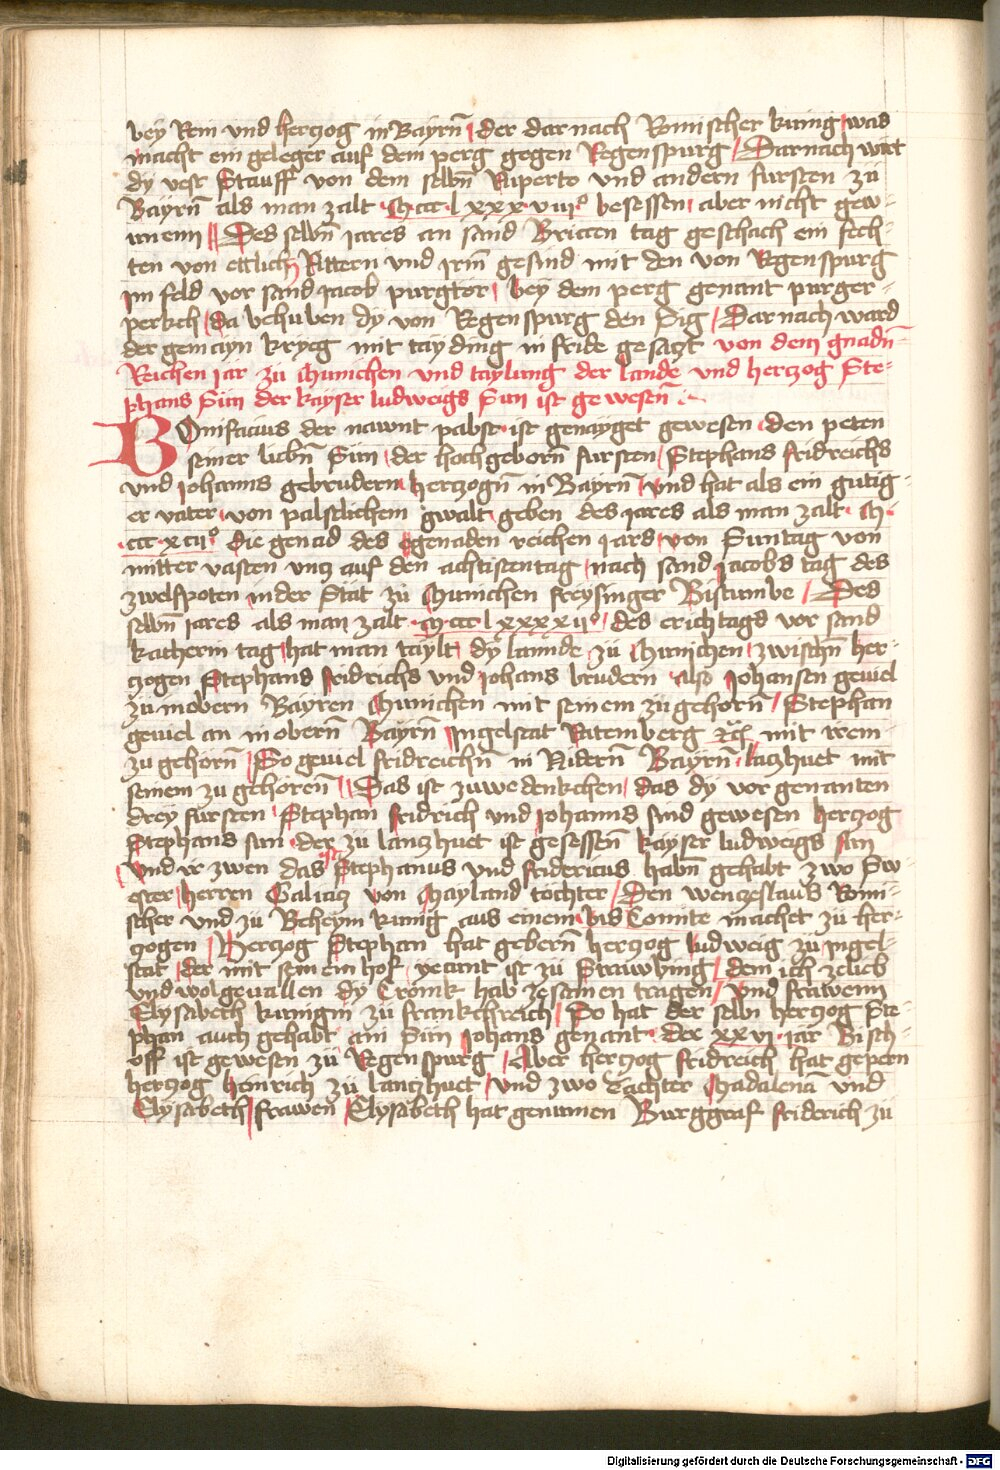 bey Rein vnd hertzog in Bayrn̄ / der dar nach Romischer kunig / was
macht ein geleger auf dem perg gegen Regenspurg / Darnach wart
dy vest Stauff von dem selbn̄ Ruperto vnd andern fursten zu
Bayrn̄ als man zalt · M · ccc · l xxx · viii° besessen / aber nicht gew-
unenn // Des selbn̄ jares an sand Briccen tag geschach ein fech-
ten von ettlichn̄ Rittern vnd irm̄ gesind mit den von Regenspurg
im feld vor sand jacob purgtor / bey dem perg genant purger-
perkch / Da behuben dy von Regenspurg den Sig / Darnach ward
der gemayn kryeg mit tayding in fride gesatzt von dem gnadn̄-
Reichen jar zu Munichen vnd taylung der lande vnd hertzog Ste-
phans Sun der kayser ludweigs Sun ist gewesen̄
Bonifacius der nawnt pabst · ist genayget gewesen · den peten
seiner liebn̄ Sun / der hochgeborn̄ fursten / Stephans fridreichs
vnd johanns gebrudern hertzogn̄ in Bayrn̄ / vnd hat als ein gutig-
er vater / von pabstlichem gwalt geben des jares als man zalt · M ·
· ccc · xcii° die genad des egenaden reichen jars / von Suntag von
mitter vasten vntz auf den achtistentag / nach sand jacobs tag des
zwelfpoten in der Stat zu Munichen freysinger Bistumbe / Des
selbn̄ jares als man zalt · M · ccc l xxxx ii° / des erichtags vor sand
katherin tag / hat man taylt / dy lannde zu Munichen / zwischn̄ her-
zogen Stephans fridrichs vnd johans brudern · also Johansen geuiel
zu in obern Bayren Munichen mit seinem zugehorn̄ / Stephan
geuiel an in obern̄ Bayrn̄ Ingelstat Ratemberg mit irem
zugehorn̄ / So geuiel fridreichn̄ in Nidern̄ Bayrn̄ · lantzhuet mit
seinem zu gehoren̄ // Das ist zuwedenkchen / das dy vor genanten
drey fursten / Stephan fridrich vnd johanns sind gewesen hertzog
Stephans sun · der zu lantzhuet ist gesessen̄ kayser ludweigs sun
vnd ir zwen das ist Stephanus vnd fridericus habn̄ gehabt zwo Sw-
ester / herren Galiatz von Mayland tochter / Den wentzeslaus Romi-
scher vnd zu Beheym kunig aus einem vis Comite machet zu her-
zogen / Hertzog Stephan hat gebern̄ hertzog ludweig zu ingel-
stat / der mit seinem hof veiant ist zu Strawbing / dem ich zelieb
vnd wolgeuallen dy Cronik hab zesamen tragen / vnd frawenn
Elysabeth kunigin zu frankchreich / So hat der selbn hertzog Ste-
phan auch gehabt ain Sun Johans genant · der xxvi · jar Bisch-
off ist gewesen zu Regenspurg / Aber hertzog fridreich hat gepern
hertzog heinrich zu lantzhuet / vnd zwo Tachter Madalena vnd
Elysabeth / frawen Elysabeth hat genumen Burggraf friderich zu
Digitalisierung gefördert durch die Deutsche Forschungsgemeinschaft - DFG